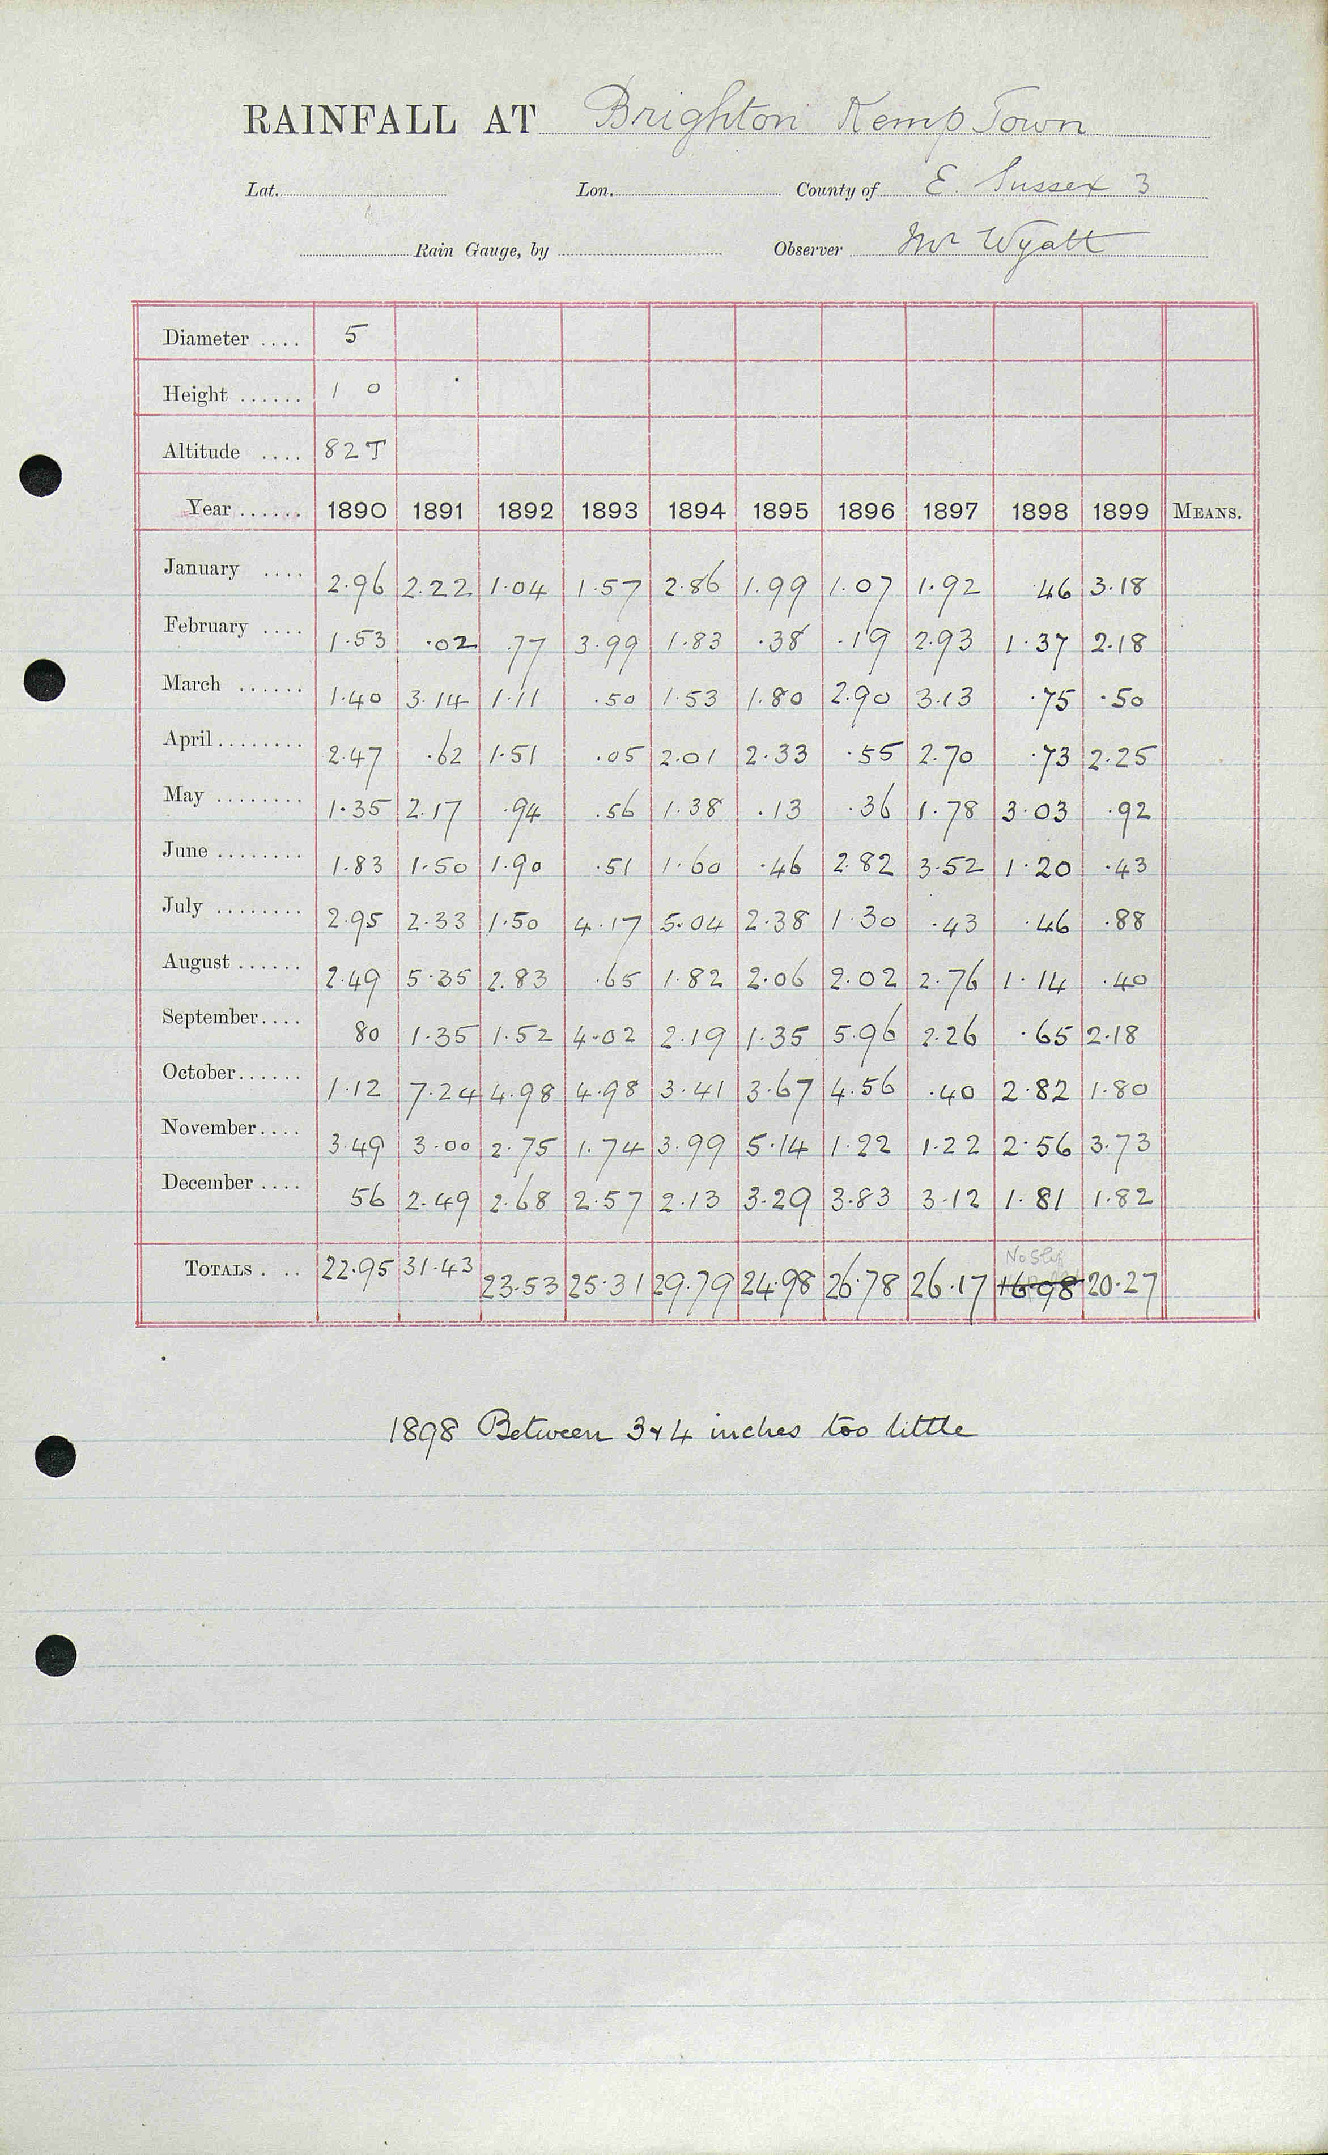 RAINFALL AT Brighton Kemp Town
Lat. Lon. County of E. Sussex 3
Rain Gauge, by Observer Mr Wyatt
Diameter .... 5
Height ...... 1 0
Altitude .... 82 T
Year ...... 1890 1891 1892 1893 1894 1895 1896 1897 1898 1899 MEANS.
January .... 2.96 2.22 1.04 1.57 2.86 1.99 1.07 1.92 .46 3.18
February .... 1.53 .02 .77 3.99 1.83 .38 .19 2.93 1.37 2.18
March ...... 1.40 3.14 1.11 .50 1.53 1.80 2.90 3.13 .75 .50
April ........ 2.47 .62 1.51 .05 2.01 2.33 .55 2.70 .73 2.25
May ........ 1.35 2.17 .94 .56 1.38 .13 .36 1.78 3.03 .92
June ........ 1.83 1.50 1.90 .51 1.60 .46 2.82 3.52 1.20 .43
July ........ 2.95 2.33 1.50 4.17 5.04 2.38 1.30 .43 .46 .88
August ...... 2.49 5.35 2.83 .65 1.82 2.06 2.02 2.76 1.14 .40
September.... 80 1.35 1.52 4.02 2.19 1.35 5.96 2.26 .65 2.18
October...... 1.12 7.24 4.98 4.98 3.41 3.67 4.56 .40 2.82 1.80
November.... 3.49 3.00 2.75 1.74 3.99 5.14 1.22 1.22 2.56 3.73
December .... 56 2.49 2.68 2.57 2.13 3.29 3.83 3.12 1.81 1.82
No Slip
TOTALS . .. 22.95 31.43 23.53 25.31 29.79 24.98 26.78 26.17 16.98 20.27
1898 Between 3 & 4 inches too little